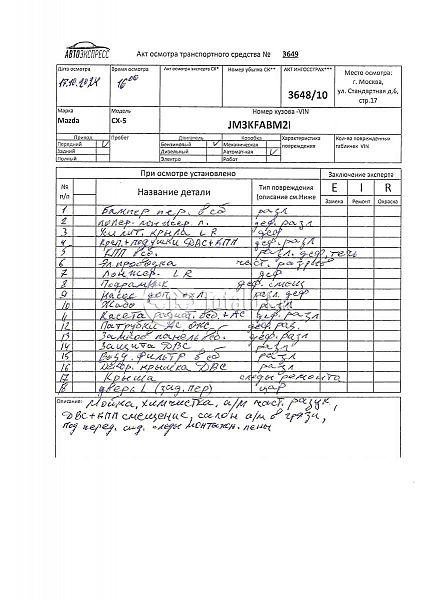 АВТОЭКСПРЕСС
Акт осмотра транспортного средства № 3649
Дата осмотра Время осмотра Акт осмотра страховой СК* Номер убытка СК** АКТ ИНГОССТРАХ*** Место осмотра:
г. Москва,
ул. Стандартная д.6,
стр.17
17.10.2024 16 00 3648/10
Марка Модель Номер кузова -VIN
Mazda CX-5 JM3KFABM2I
Привод Пробег Двигатель Коробка Характеристика повреждения Кол-во поврежденных табличек VIN
Передний √ Бензиновый √ Механическая
Задний Дизельный Автомат √
Полный Электро Робот
При осмотре установлено Заключение эксперта
№ п/п Название детали Тип повреждения (описание см.Ниже E I R
Замена Ремонт Окраска
1 Бампер пер. в сб разл
2 попер. лонжер п. деф. разл
3 Усилит. крыла L R деф
4 Креп.+подушки ДВС+КПП деф. разл
5 КПП всб. разл. деф, течь
6 Эл.проводка част. разрыв
7 Лонжер. L R деф
8 Подрамник деф. смещ
9 разл. деф
10 Жабо разл
11 Касета радиат. всб.+АС деф. разл
12 Патрубки АС ОЖ деф раз.
13 Замков панель всб. деф. разл
14 Защита ДВС разл
15 Возд. фильтр в сб разл
16 Декор. крышка ДВС разл
17 Крыша следы ремонта
18 дверь L (зад, пер) цар
Описание: Мойка, химчистка, а/м част. разук,
ДВС+КПП смещение, салон а/м в грязи,
под перед. сид. следы монтажн. пены